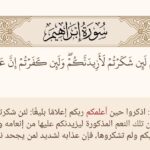 سُورَةُ إِبْرَاهِيمَ
لَئِن شَكَرْتُمْ لَأَزِيدَنَّكُمْ وَلَئِن كَفَرْتُمْ إِنَّ
: اذكروا حين أعلمكم ربكم إعلامًا بليغًا: لئن شكرتم
تلك النعم المذكورة ليزيدنكم عليها من إنعامه و
ولم تشكروها، فإن عذابه لشديد لمن يجحد ن